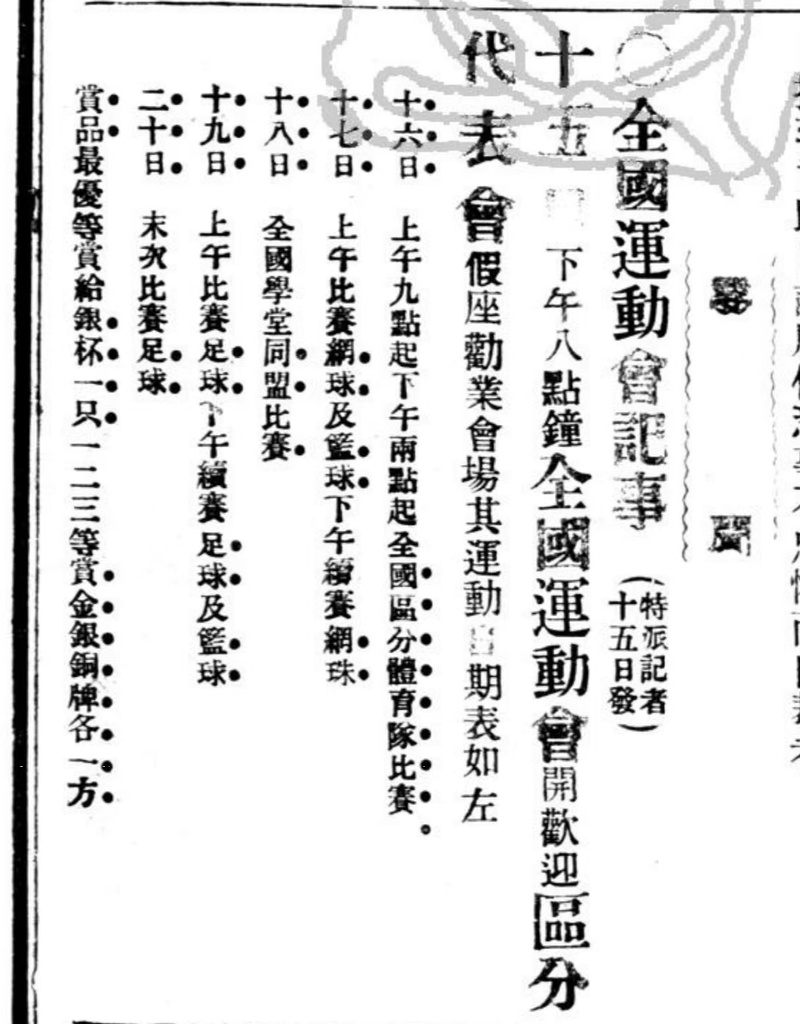 ○全國運動會記事
(特派記者
十五日發)
十五日下午八點鐘全國運動會開歡迎區分
代表會假座勸業會場其運動會期表如左
十六日 上午九點起下午兩點起全國區分體育隊比賽
十七日 上午比賽網球及籃球下午續賽網珠
十八日 全國學堂同盟比賽
十九日 上午比賽足球下午續賽足球及籃球
二十日 末次比賽足球
賞品最優等賞給銀杯一只一二三等賞金銀銅牌各一方